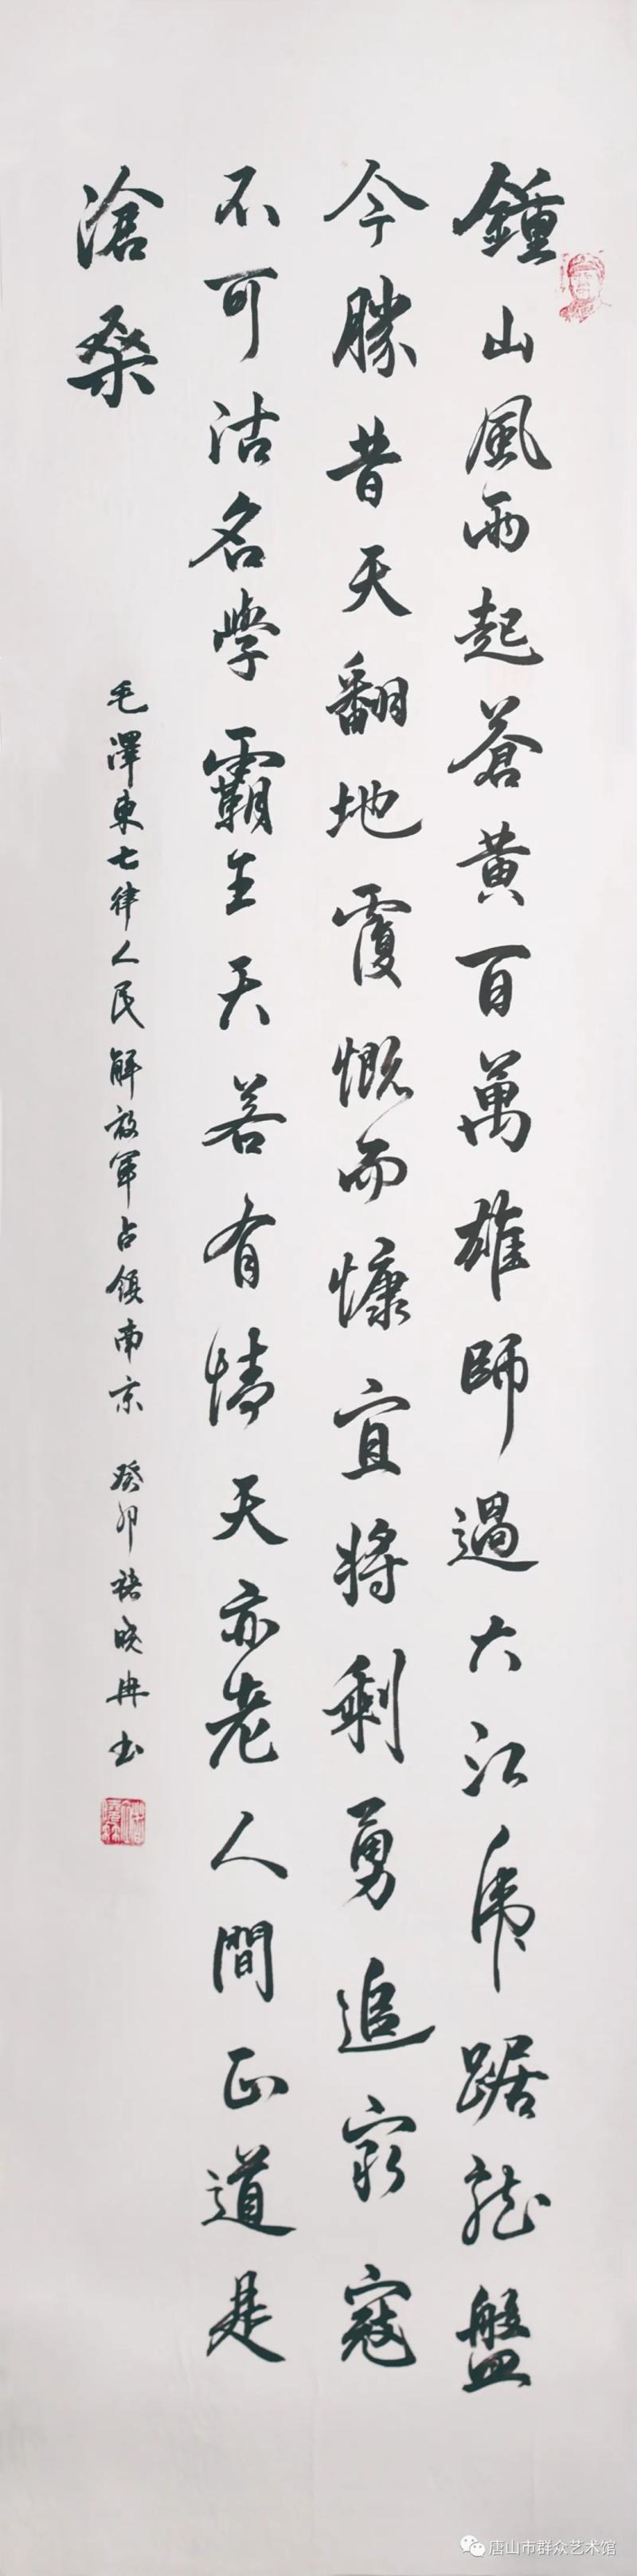 鍾山風雨起蒼黄百萬雄師過大江虎踞龍盤
今勝昔天翻地覆慨而慷宜将剩勇追窮寇
不可沽名學霸王天若有情天亦老人間正道是
滄桑
毛澤東七律人民解放軍占領南京 癸卯 曉冉书
唐山市群众艺术馆